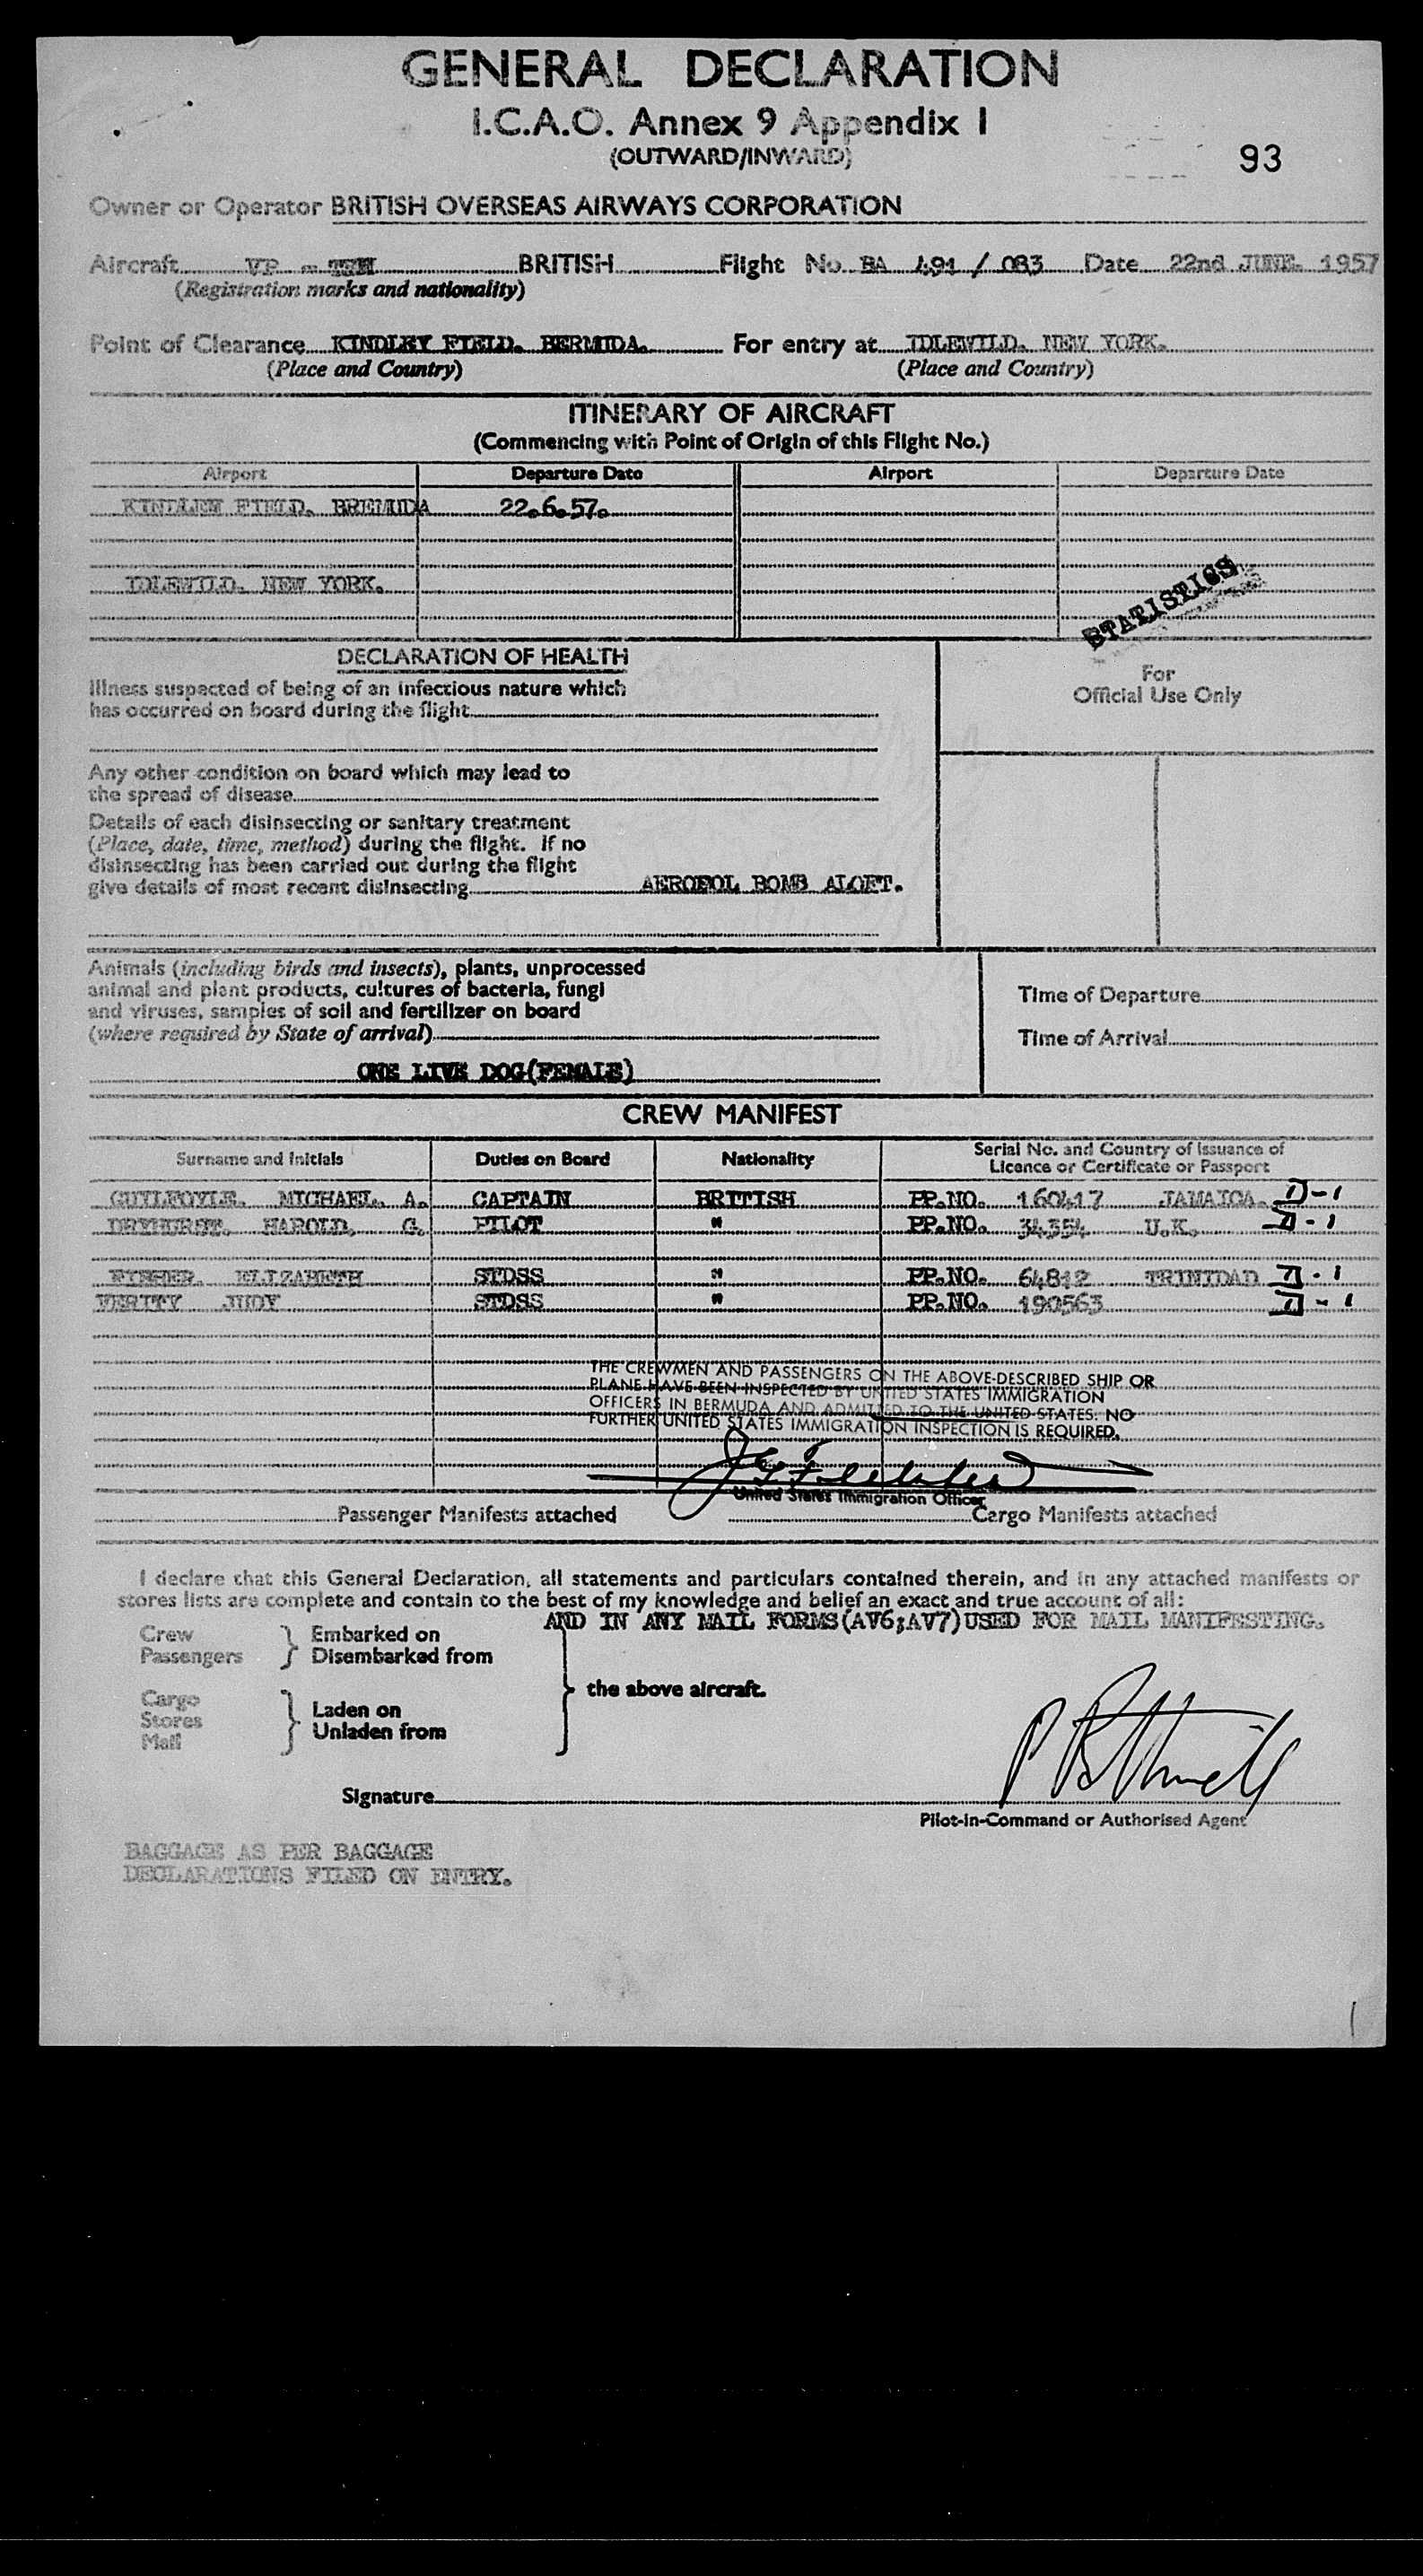 GENERAL DECLARATION
I.C.A.O. Annex 9 Appendix 1
(OUTWARD/INWARD)
93
Owner or Operator BRITISH OVERSEAS AIRWAYS CORPORATION
Aircraft VP - BRITISH Flight No. BA 491 / 083 Date 22nd JUNE. 1957
(Registration marks and nationality)
Point of Clearance KINDLEY FIELD. BERMUDA. For entry at IDLEWILD. NEW YORK.
(Place and Country) (Place and Country)
ITINERARY OF AIRCRAFT
(Commencing with Point of Origin of this Flight No.)
Airport Departure Date Airport Departure Date
FIELD. BREMUDA 22.6.57.
IDLEWILD. NEW YORK.
STATISTICS
DECLARATION OF HEALTH
For
Official Use Only
Illness suspected of being of an infectious nature which
has occurred on board during the flight
Any other condition on board which may lead to
the spread of disease
Details of each disinsecting or sanitary treatment
(Place, date, time, method) during the flight. If no
disinsecting has been carried out during the flight
give details of most recent disinsecting BOMB ALOFT.
Animals (including birds and insects), plants, unprocessed
animal and plant products, cultures of bacteria, fungi
and viruses, samples of soil and fertilizer on board
(where required by State of arrival)
ONE LIVE DOG(FEMALE)
Time of Departure
Time of Arrival
CREW MANIFEST
Surname and Initials Duties on Board Nationality Serial No. and Country of Issuance of
Licence or Certificate or Passport
GUILFOYLE. MICHAEL. A. CAPTAIN BRITISH PP.NO. 160417 JAMAICA. D-1
DRYHURST. HAROLD. G. PILOT " PP.NO. 34354 U.K. D-1
FISHER. ELIZABETH STDSS " PP.NO. 64812 TRINIDAD D-1
VERITY JUDY STDSS " PP.NO. 190563 D-1
THE CREWMEN AND PASSENGERS ON THE ABOVE-DESCRIBED SHIP OR
PLANE HAVE BEEN INSPECTED BY UNITED STATES IMMIGRATION
OFFICERS IN BERMUDA AND ADMITTED TO THE UNITED STATES. NO
FURTHER UNITED STATES IMMIGRATION INSPECTION IS REQUIRED.
United States Immigration Officer
Passenger Manifests attached Cargo Manifests attached
I declare that this General Declaration, all statements and particulars contained therein, and in any attached manifests or
stores lists are complete and contain to the best of my knowledge and belief an exact and true account of all:
AND IN ANY MAIL FORMS(AV6;AV7)USED FOR MAIL MANIFESTING.
Crew Embarked on
Passengers Disembarked from
the above aircraft.
Cargo Laden on
Stores Unladen from
Mail
Signature
Pilot-in-Command or Authorised Agent
BAGGAGE AS PER BAGGAGE
DECLARATIONS FILED ON ENTRY.